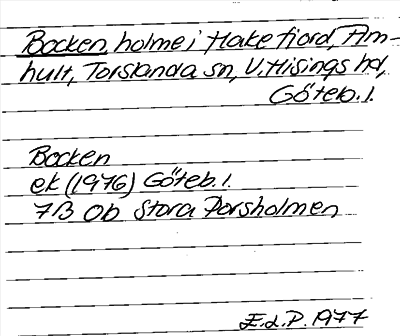 Bocken, holme i Hake fjord, Am-
hult, Torslanda sn, V. Hisings hd,
Göteb. l.
Bocken
ek (1976) Göteb. l.
7B 0b Stora Porsholmen
E.L.P. 1977